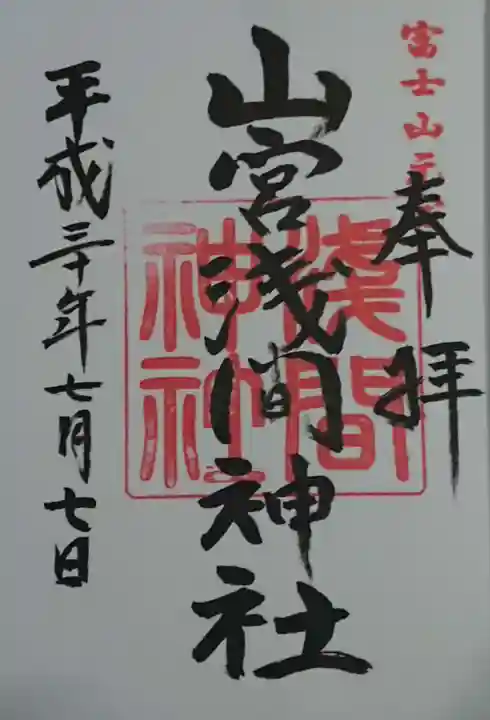 富士山元
奉拝
山宮浅間神社
淺間
神社
平成三十年七月七日